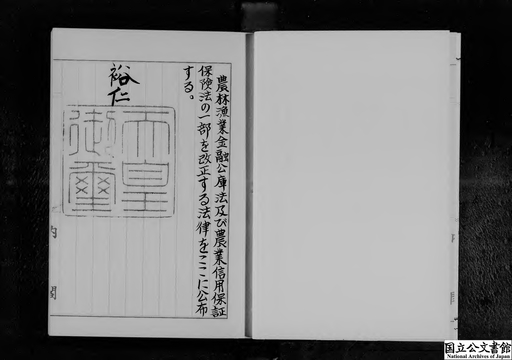 農林漁業金融公庫法及び農業信用保証
保険法の一部を改正する法律をここに公布
する。
裕仁
天皇
御璽
内閣
国立公文書館
National Archives of Japan